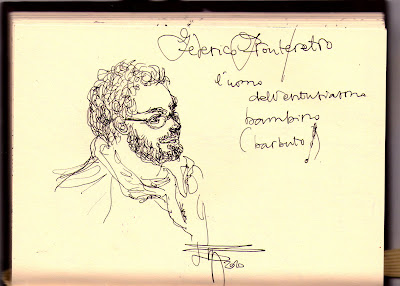 Federico Monteretro
l'uomo
dell'entusiasmo
bambino
(barbuto!)
2010